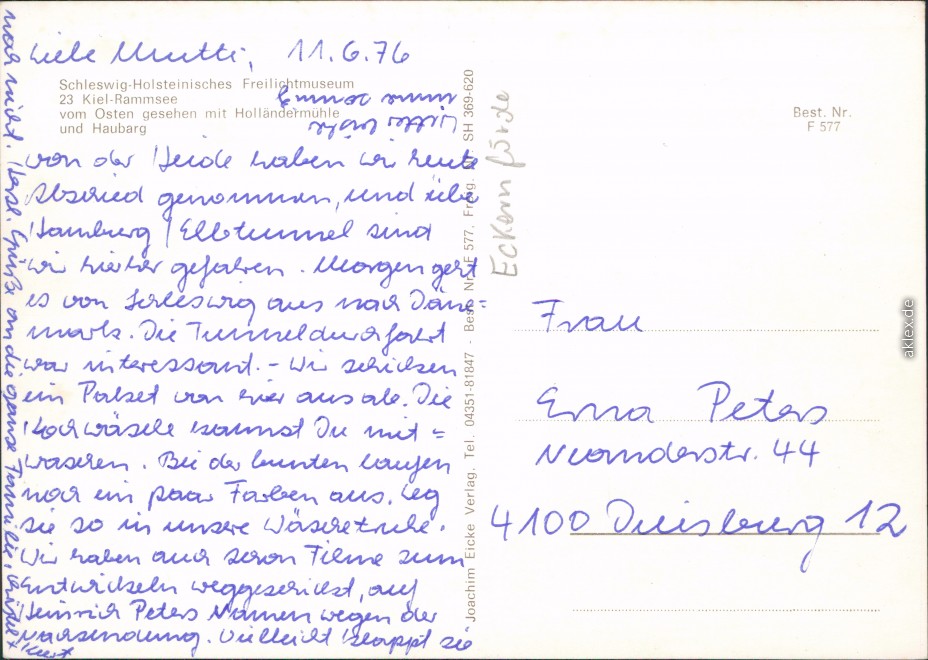 Liebe Mutti, 11.6.76
Schleswig-Holsteinisches Freilichtmuseum
23 Kiel-Rammsee
vom Osten gesehen mit Holländermühle
und Haubarg
von der Heide haben wir heute
Abschied genommen, und über
Hamburg / Elbtunnel sind
wir hierher gefahren. Morgen geht
es von Schleswig aus nach Däne=
mark. Die Tunneldurchfahrt
war interessant. – Wir schicken
ein Paket von hier aus ab. Die
Kochwäsche kannst Du mit=
waschen. Bei der bunten laufen
noch ein paar Farben aus. Leg
sie so in unsere Wäschetruhe.
Wir haben auch schon Filme zum
Entwickeln weggeschickt, auf
Heinrich Peters Namen wegen der
Nachsendung. Vielleicht klappt sie
noch nicht. Herzl. Grüße an die ganze Familie,
Kurt
Joachim Eicke Verlag, Tel. 04351-81847 - Best. Nr. F 577, Freig. SH 369-620
Eckernförde
Best. Nr.
F 577
Frau
Erna Peters
Neanderstr. 44
4100 Duisburg 12
aklex.de